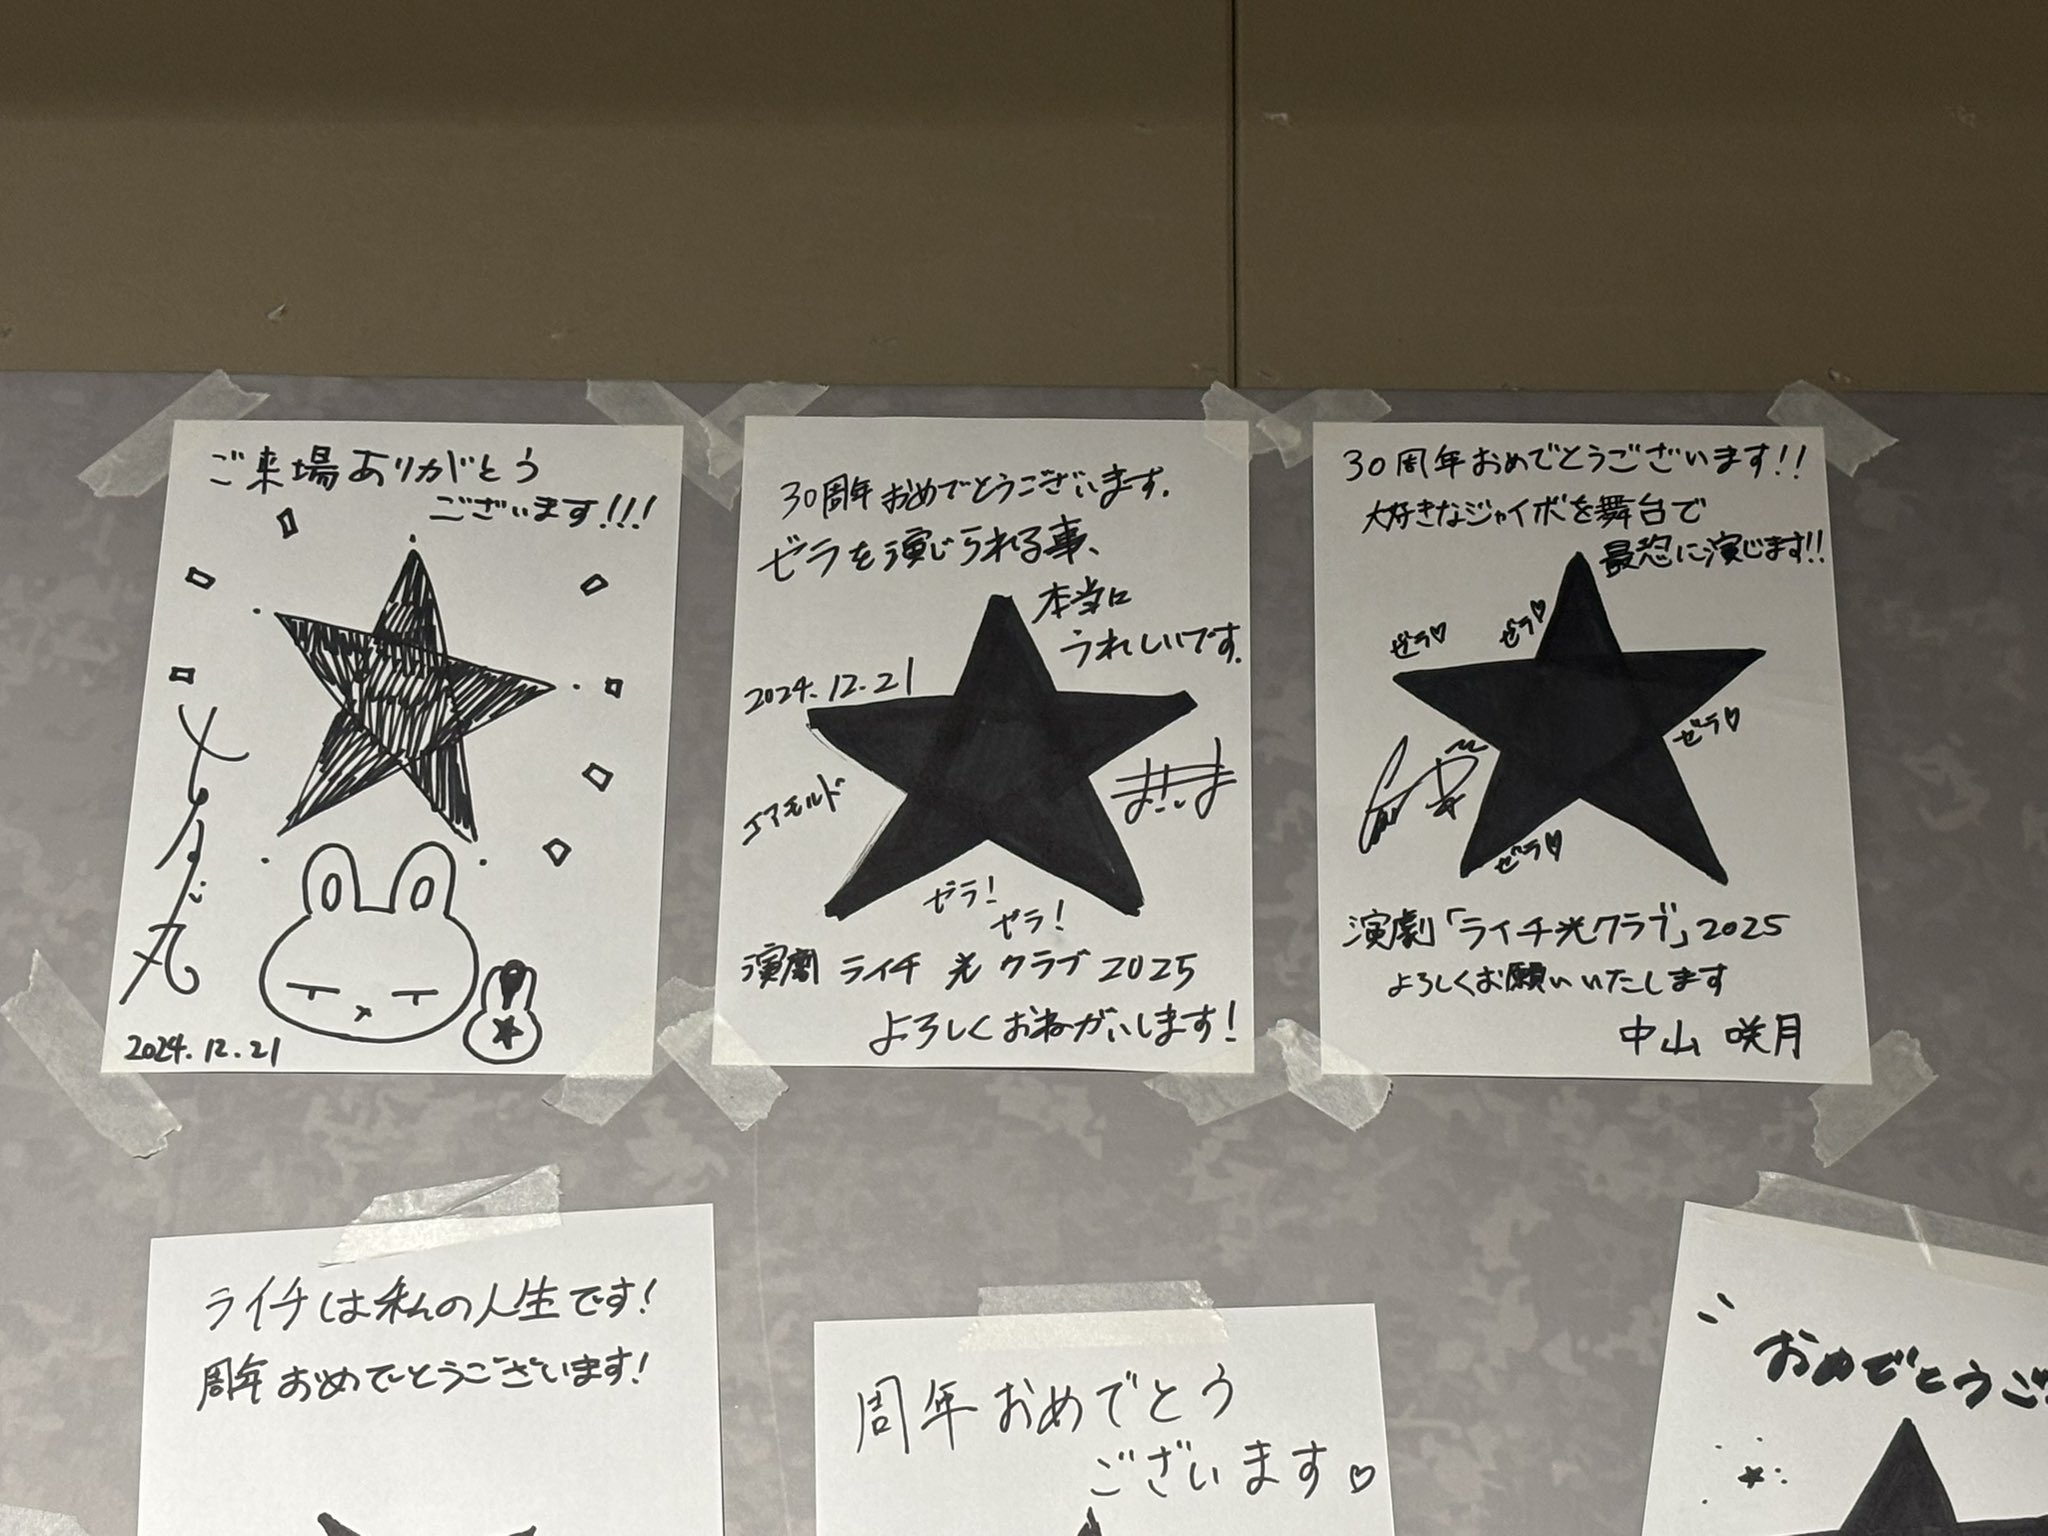 ご来場ありがとう
ございます!!!
2024.12.21
30周年おめでとうございます.
ゼラを演じられる事、
本当に
うれしいです.
2024.12.21
エアモルド
ゼラ!
ゼラ!
演劇 ライチ 光 クラブ 2025
よろしくおねがいします!
30周年おめでとうございます!!
大好きなジャイボを舞台で
最恐に演じます!!
ゼラ♡
ゼラ♡
ゼラ♡
ゼラ♡
演劇「ライチ光クラブ」2025
よろしくお願いいたします
中山 咲月
ライチは私の人生です!
周年おめでとうございます!
周年おめでとう
ございます♡
おめでとうご